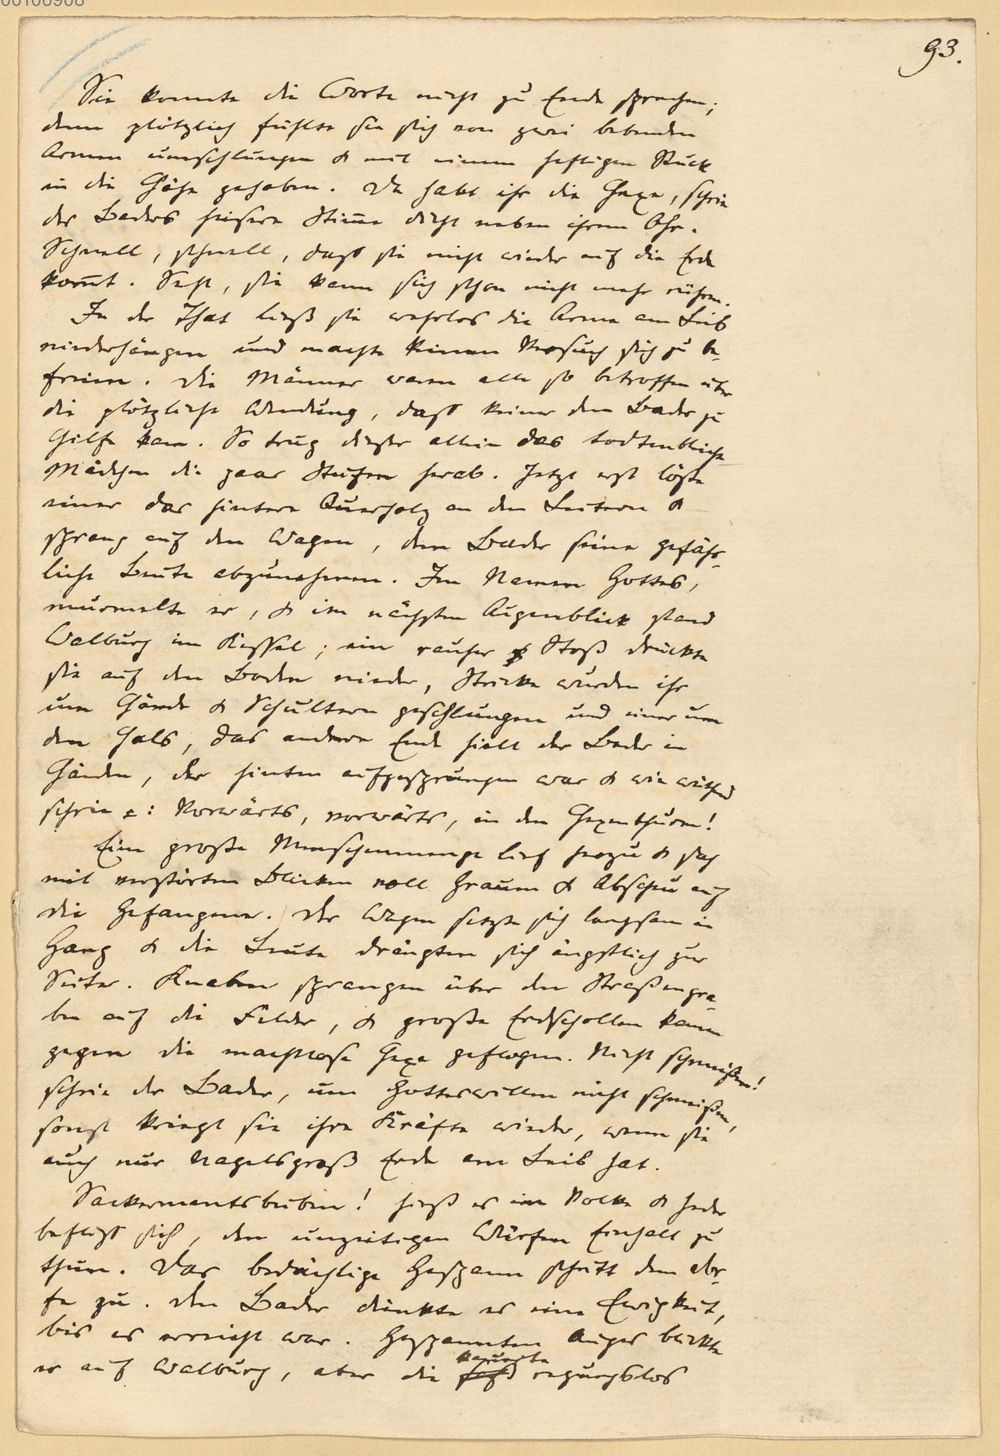 00106908
93.
Sie konnte die Worte nicht zu Ende sprechen;
denn plötzlich fühlte sie sich von zwei bebenden
Armen umschlungen & mit einem heftigen Ruck
in die Höhe gehoben. Da habt ihr die Hexe, schrie
des Baders heisere Stim̄e dicht neben ihrem Ohr.
Schnell, schnell, daß sie nicht wieder auf die Erde
kom̄t. Seht, sie kann sich schon nicht mehr rühren.
In der That ließ sie wehrlos die Arme am Leib
niederhängen und machte keinen Versuch sich zu be-
freien. Die Männer waren alle so betroffen über
die plötzliche Wendung, daß keiner dem Bader zu
Hilfe kam. So trug dieser allein das todtenbleiche
Mädchen die paar Stufen herab. Jetzt erst löste
einer das hintere Querholz an den Leitern &
sprang auf den Wagen, dem Bader seine gefähr-
liche Beute abzunehmen. Im Namen Gottes,
murmelte er, & im nächsten Augenblick stand
Walburg im Kessel; ein rauher Stoß drückte
sie auf den Boden nieder, Stricke wurden ihr
um Hände & Schultern geschlungen und einer um
den Hals, das andere Ende hielt der Bader in
Händen, der hinten aufgesprungen war & wie wüthend
schrie: Vorwärts, vorwärts, in den Hexenthurm!
Eine große Menschenmenge lief herzu & sah
mit verstörten Blicken voll Graum & Abscheu auf
die Gefangene. Der Wagen setzte sich langsam in
Gang & die Leute drängten sich ängstlich zur
Seite. Knaben sprangen über den Straßengra-
ben auf die Felder, & große Erdschollen kamen
gegen die machtlose Hexe geflogen. Nicht schmeißen!
schrie der Bader, um Gotteswillen nicht schmeißen,
sonst kriegt sie ihre Kräfte wieder, wenn sie
auch nur nagelsgroß Erde am Leib hat.
Sackermentsbuben! hieß es im Volke & Jeder
befliß sich, den unzeitigen Würfen Einhalt zu
thun. Das bedächtige Gespann schritt dem
zu. Den Bader dünkte es eine Ewigkeit,
bis es erreicht war. Gespannten Auges blickte
kauerte
er auf Walburg, aber die regungslos